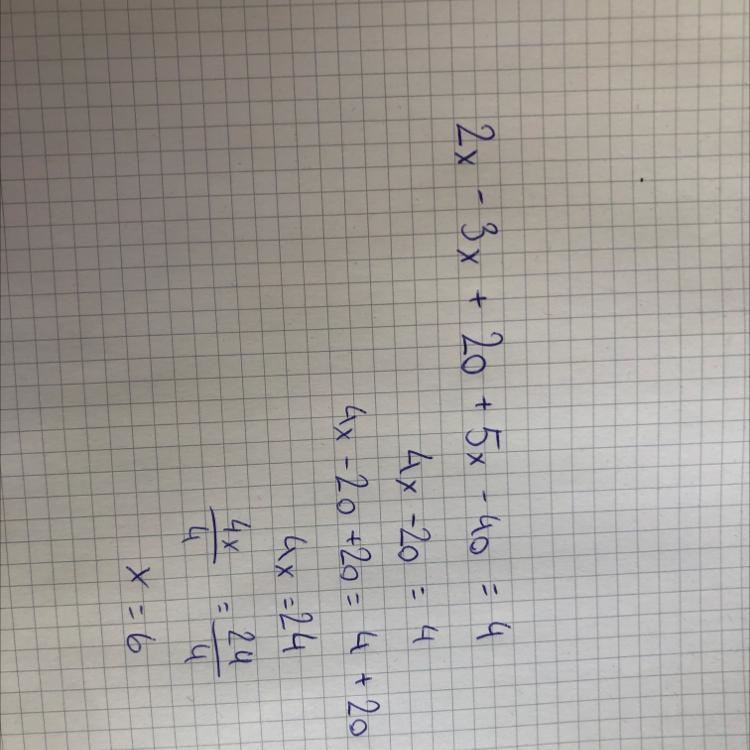 2x - 3x + 20 + 5x - 40 = 4
4x - 20 = 4
4x - 20 + 20 = 4 + 20
4x = 24
4x/4 = 24/4
x = 6